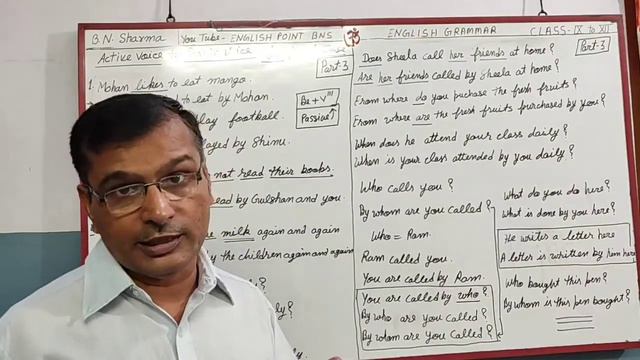 B.N. Sharma
You Tube - ENGLISH POINT BNS
ॐ
ENGLISH GRAMMAR
CLASS - IX to XII
Active Voice
Part-3
1. Mohan likes to eat mango.
to eat by Mohan.
Be + VIII
Passive
play football.
played by Shinu.
not read their books.
read by Gulshan and you
milk again and again
by the children again and again
Does Sheela call her friends at home?
Part-3
Are her friends called by Sheela at home?
From where do you puchase the fresh fruits?
From where are the fresh fruits purchased by you?
When does he attend your class daily?
When is your class attended by you daily?
Who calls you?
By whom are you called?
Who = Ram.
Ram called you.
You are called by Ram.
You are called by who?
By who are you called?
By whom are you called?
What do you do here?
What is done by you here?
He writes a letter here
A letter is written by him here
Who bought this pen?
By whom is this pen bought?